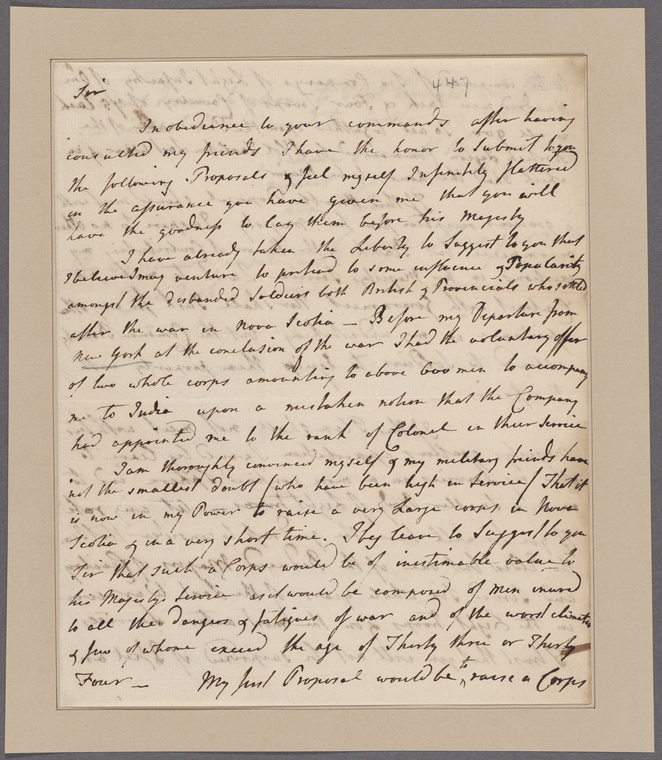 447
Sir
In obedience to your commands after having
consulted my friends I have the honor to submit to you
the following Proposals & feel myself Infinitely flattered
in the assurance you have given me that you will
have the goodness to lay them before his Majesty
I have already taken the Liberty to Suggest to you that
I believe I may venture to pretend to some influence & Popularity
amongst the disbanded Soldiers both British & Provincials who settled
after the war in Nova Scotia — Before my Departure from
New York at the conclusion of the war I had the voluntary offer
of two whole corps amounting to above 600 men to accompany
me to India upon a mistaken notion that the Company
had appointed me to the rank of Colonel in their Service
I am thoroughly convinced myself & my military friends have
not the smallest doubt (who have been high in Service) That it
is now in my Power to raise a very Large corps in Nova
Scotia & in a very short time. I beg leave to Suggest to you
Sir that such a Corps would be of inestimable value to
his Majestys Service as it would be composed of men inured
to all the dangers & fatigues of war and of the worst climates
& few of whome exceed the age of Thirty three or Thirty
Four — My first Proposal would be to raise a Corps